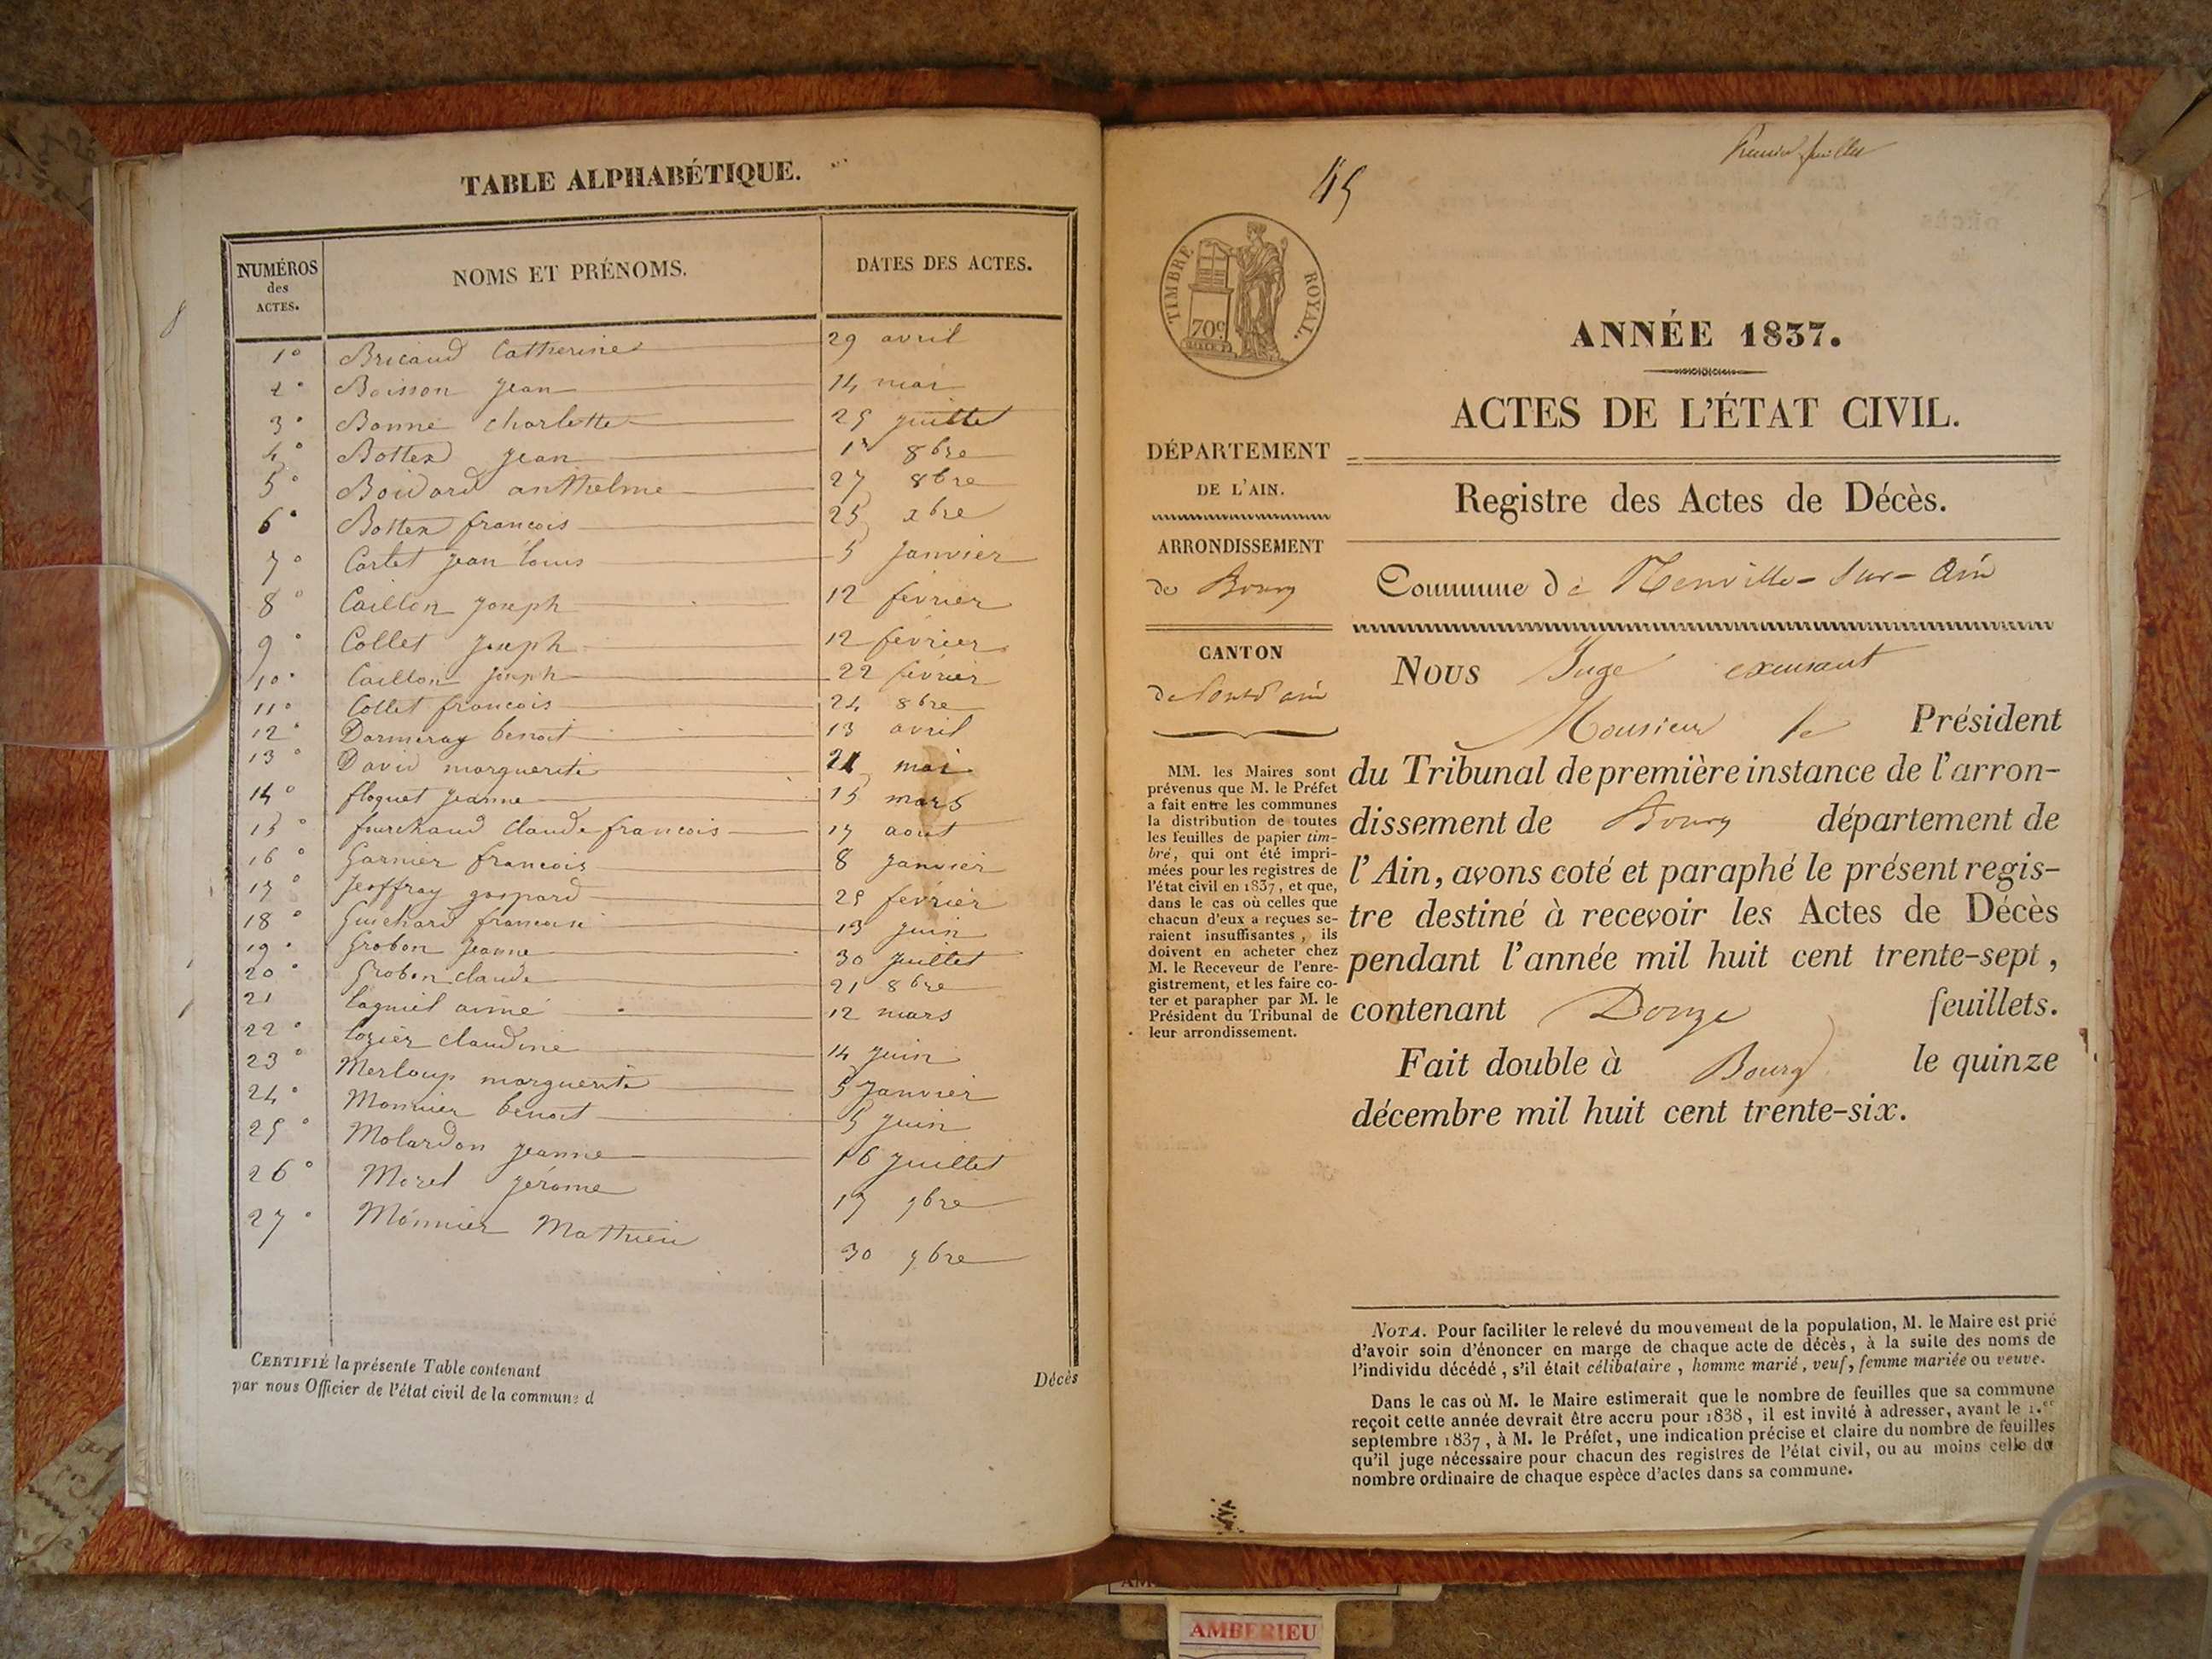 TABLE ALPHABÉTIQUE.
NUMÉROS des ACTES.
NOMS ET PRÉNOMS.
DATES DES ACTES.
1° Bricaud Catherine 29 avril
2° Boisson Jean 14 mai
3° Bonne charlotte 25 juillet
4° Bottex Jean 1er 8bre
5° Boidard anthelme 27 8bre
6° Bottex françois 25 xbre
7° Cartet jean louis 5 Janvier
8° Caillon Joseph 12 février
9° Collet Joseph 12 février
10° Caillon Joseph 22 février
11° Collet françois 24 8bre
12° Dormeray benoit 13 avril
13° David marguerite 21 mai
14° floquet Jeanne 15 mars
15° furchaud Claude françois 17 aout
16° Garnier françois 8 janvier
17° Jeoffray gaspard 25 février
18° Guichard françois 13 juin
19° Grobon Jeanne 30 juillet
20° Grobon claude 21 8bre
21 lagniel aimé 12 mars
22° lozier claudine 14 juin
23° Merloup marguerite 5 Janvier
24° Monnier benoit 5 juin
25° Molardon jeanne 16 juillet
26° Morel jérome 17 9bre
27° Monnier Mathieu 30 9bre
CERTIFIÉ la présente Table contenant Décès
par nous Officier de l'état civil de la commune d
45
Premier feuillet
TIMBRE ROYAL.
70c
ANNÉE 1837.
ACTES DE L'ÉTAT CIVIL.
DÉPARTEMENT
DE L'AIN.
Registre des Actes de Décès.
ARRONDISSEMENT
de Bourg
Commune de Neuville-sur-Ain
CANTON
de Pont d'ain
Nous Juge excusant
Monsieur le Président
du Tribunal de première instance de l'arron-
dissement de Bourg département de
l'Ain, avons coté et paraphé le présent regis-
tre destiné à recevoir les Actes de Décès
pendant l'année mil huit cent trente-sept,
contenant Douze feuillets.
Fait double à Bourg le quinze
décembre mil huit cent trente-six.
MM. les Maires sont
prévenus que M. le Préfet
a fait entre les communes
la distribution de toutes
les feuilles de papier tim-
bré, qui ont été impri-
mées pour les registres de
l'état civil en 1837, et que,
dans le cas où celles que
chacun d'eux a reçues se-
raient insuffisantes, ils
doivent en acheter chez
M. le Receveur de l'enre-
gistrement, et les faire co-
ter et parapher par M. le
Président du Tribunal de
leur arrondissement.
NOTA. Pour faciliter le relevé du mouvement de la population, M. le Maire est prié
d'avoir soin d'énoncer en marge de chaque acte de décès, à la suite des noms de
l'individu décédé, s'il était célibataire, homme marié, veuf, femme mariée ou veuve.
Dans le cas où M. le Maire estimerait que le nombre de feuilles que sa commune
reçoit cette année devrait être accru pour 1838, il est invité à adresser, avant le 1.er
septembre 1837, à M. le Préfet, une indication précise et claire du nombre de feuilles
qu'il juge nécessaire pour chacun des registres de l'état civil, ou au moins celle du
nombre ordinaire de chaque espèce d'actes dans sa commune.
AMBERIEU